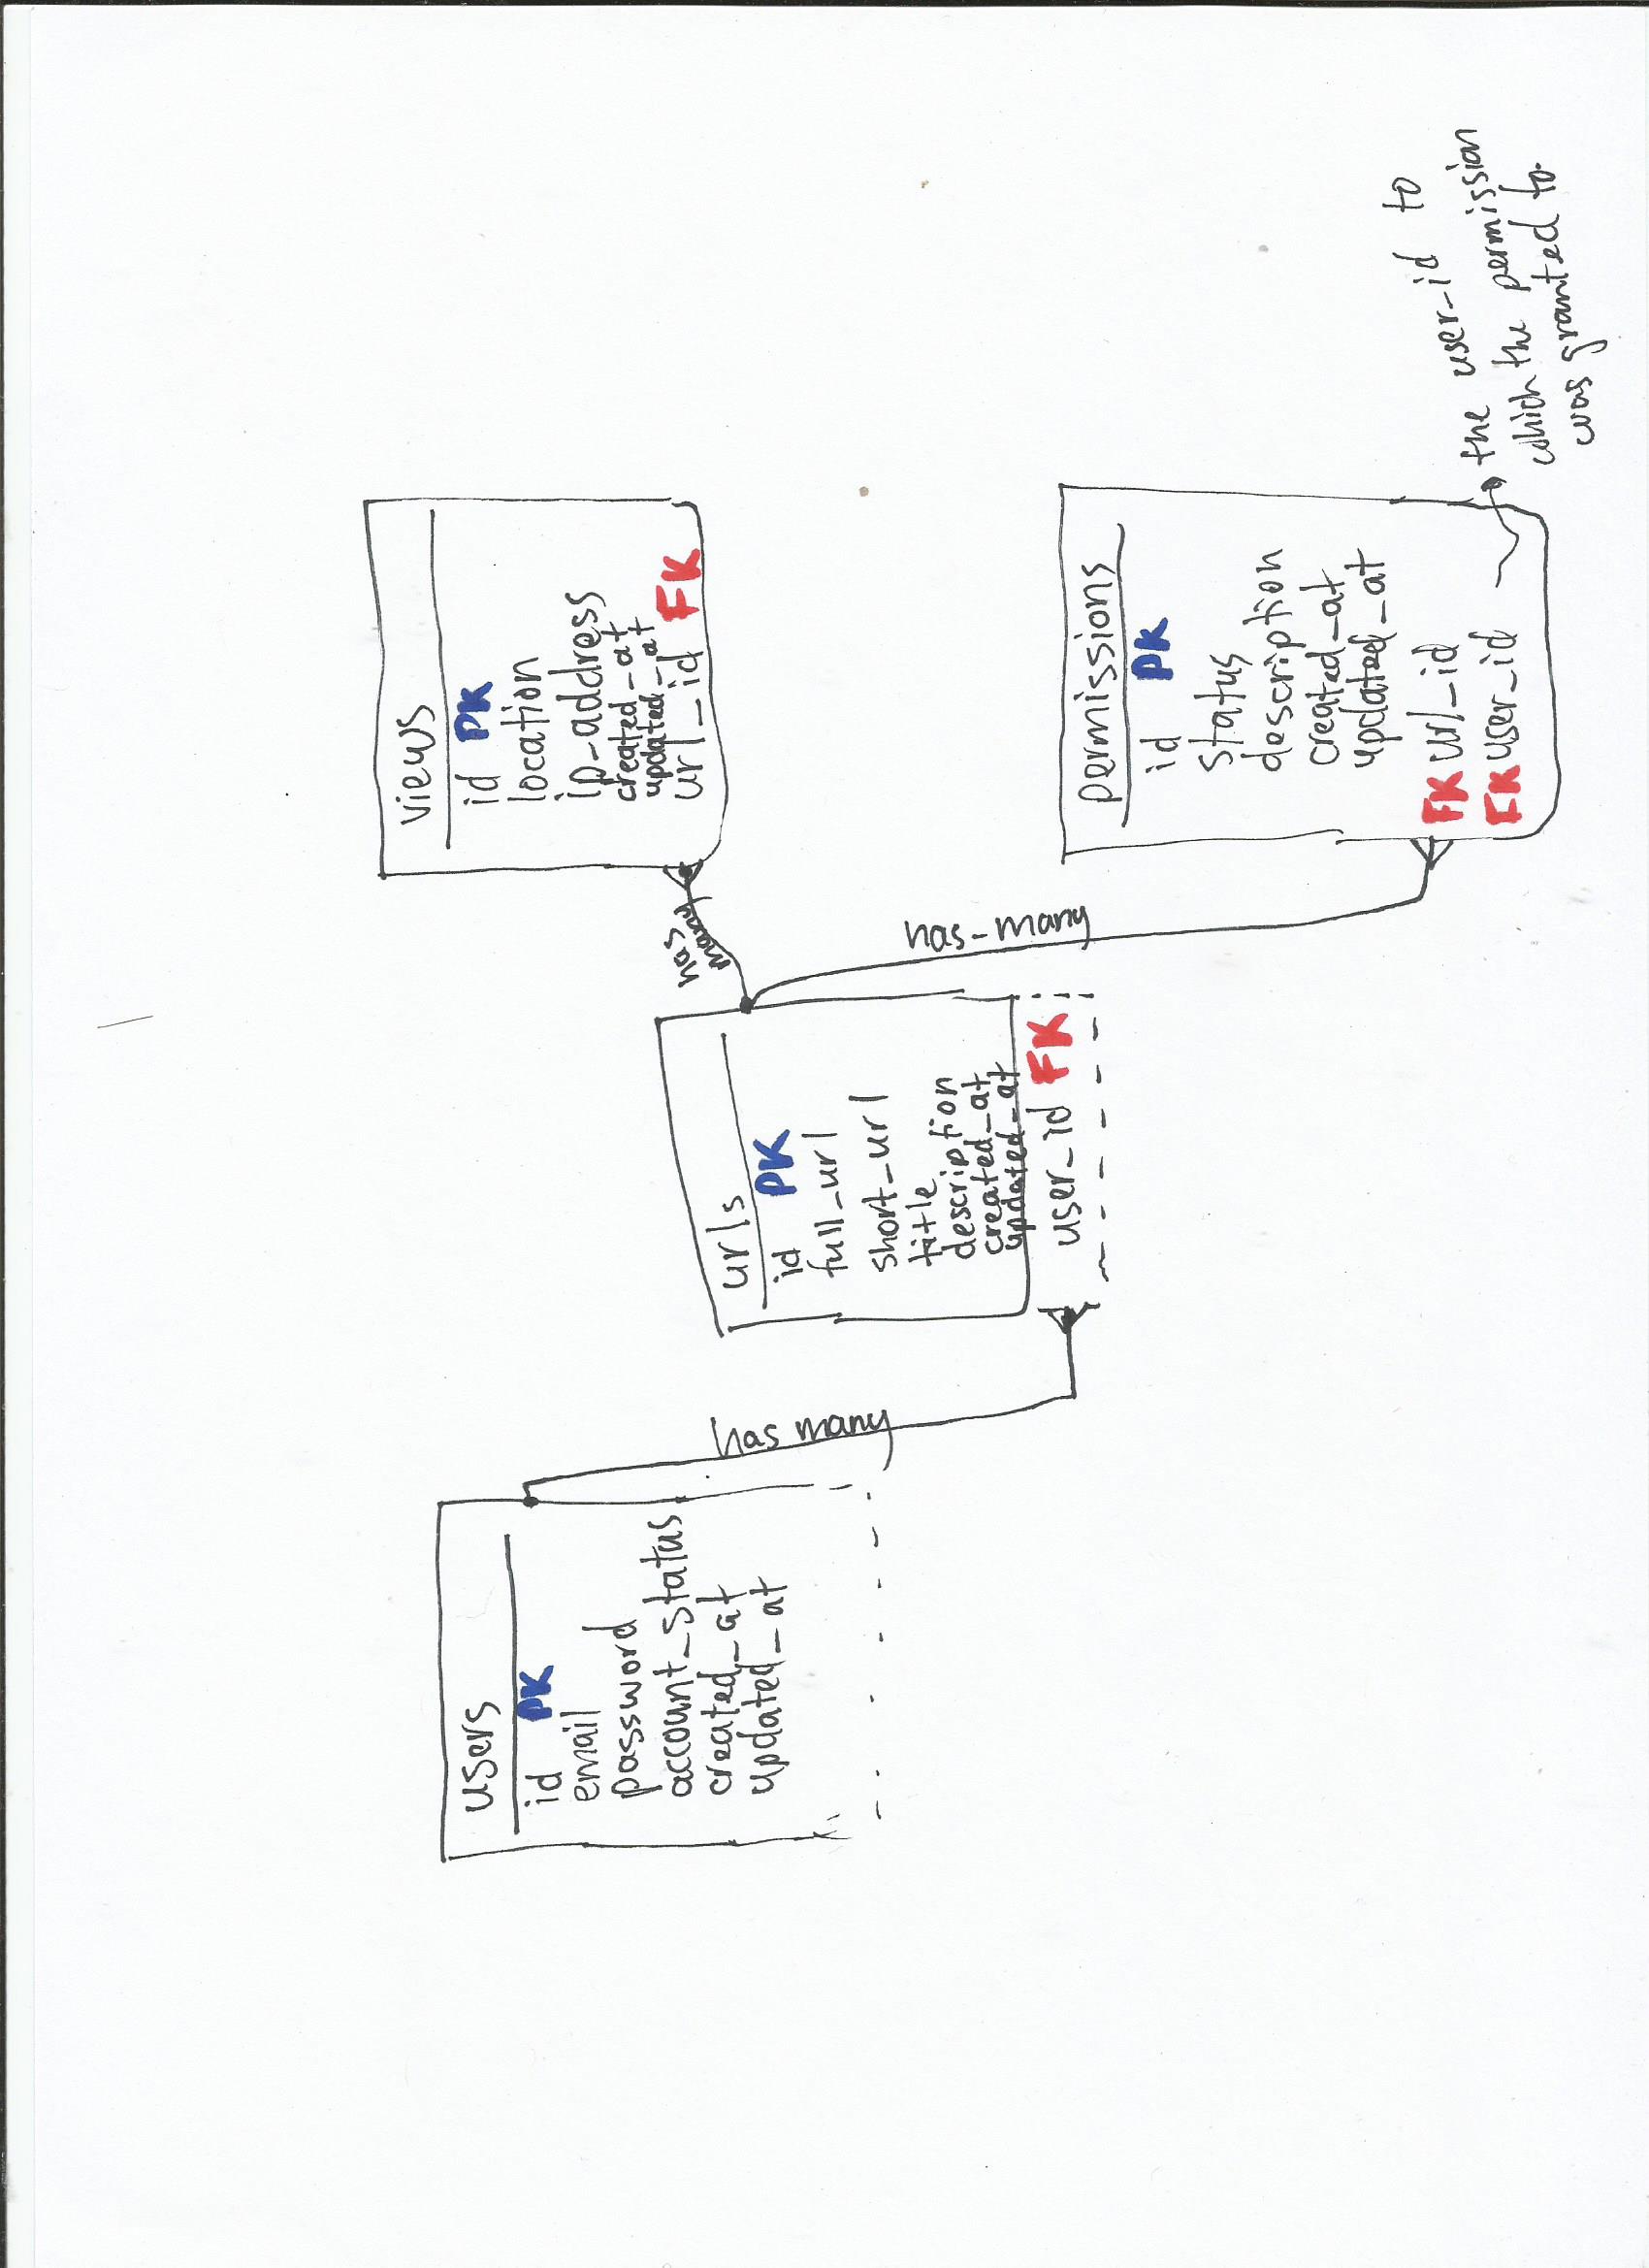 users
id PK
email
password
account_status
created_at
updated_at
has many
urls
id PK
full_url
short_url
title
description
created_at
updated_at
user_id FK
has
many
views
id PK
location
ip_address
created_at
updated_at
url_id FK
has_many
permissions
id PK
status
description
created_at
updated_at
FK url_id
FK user_id
the user_id to
which the permission
was granted to.